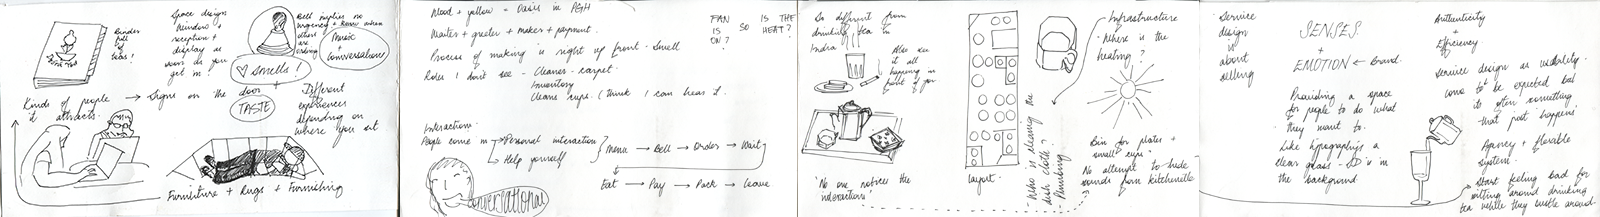 Binder
full
of
teas!
Space design
Window +
reception +
display as
soon as you
get in!
Bell implies no
urgency + even when
others are
ending
Music
+
conversations
♡ smells!
TASTE
Kinds of people → Signs on the door +
it attracts.
Different
experiences
depending on
where you sit
Furniture + Rugs + Furnishing
Wood + yellow = Oasis in PGH
Waiter + greeter + maker + payment.
Process of making is right up front. Smell
Roles I don't see - Cleaner - carpet.
Inventory
Cleans cups. (think I can hear it.
FAN IS THE
IS SO HEAT?
ON?
Interactions.
People come in → Personal interaction?
Help yourself
Menu → Bell → Order → Wait
Eat → Pay → Pack → Leave
Conversational
So different from
drinking tea in
India
Also see
it all
happening in
front of you
'No one notices the
interactions'
layout.
- Who is cleaning the
dish cloth?
- Plumbing
Infrastructure
- Where is the
heating?
Bin for plates +
small cups -
No attempt to hide
sounds from kitchenette
Service
design
is
about
selling
SENSES.
+
EMOTION ← Brand.
Providing a space
for people to do what
they want to.
Like typography is a
clear glass - SD is in
the background
Authenticity
+
Efficiency
Service design as usability.
Come to be expected but
is often something
that just happens
Agency + flexible
system.
Start feeling bad for
sitting around drinking
tea while they bustle around.